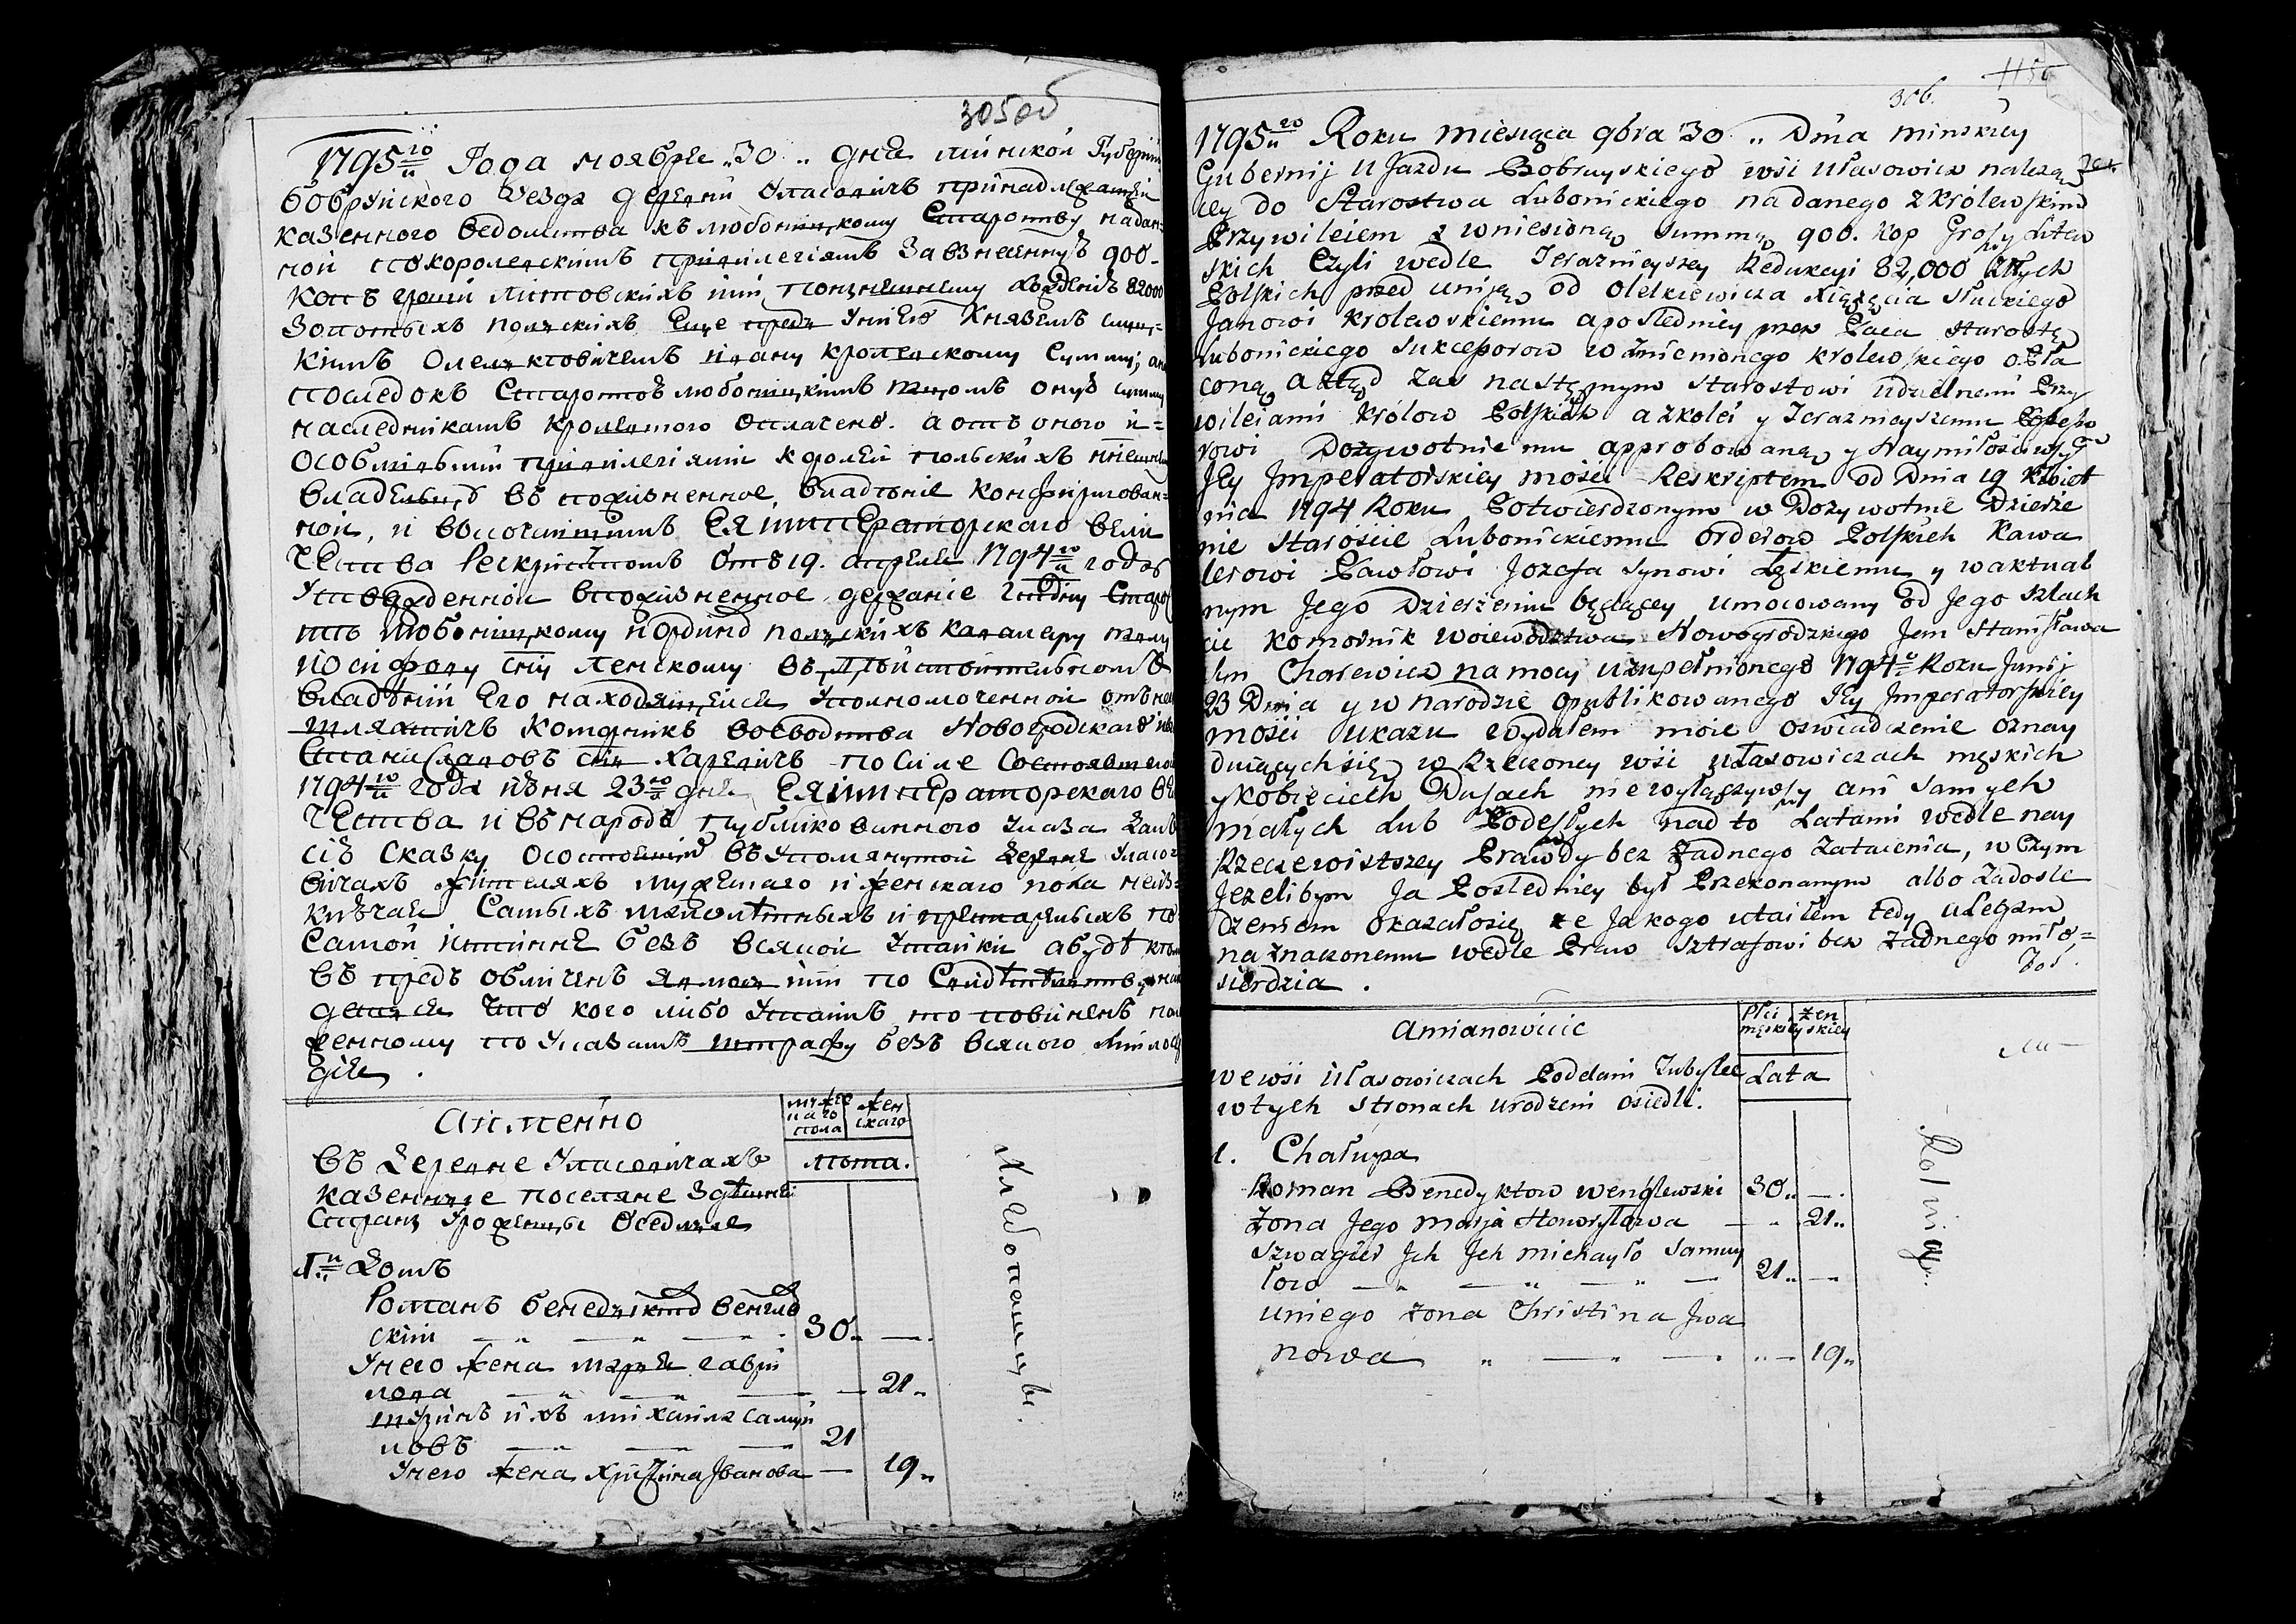 305 об
1795го Года ноября „30„ дня минской Губернии
бобруйского уезда деревни Уласовичъ принадлежащей
казенного ведомства къ любоницкому Староству надан=
ной по королевскимъ привилегиямъ За взнесенную 900-
копъ грошей литовскихъ или 82000
Золотыхъ польскихъ Еще предъ униею Княземъ слуц=
кимъ Олельковичемъ Ивану кролевскому Сумму;
последокъ Старостою любоницкимъ оную сумму
наследникамъ кролевского оплачено. а отъ оного и=
особливыми привилегиями королей польскихъ
владельцу въ пожизненное владение конфирмован=
ной, и височайшимъ ЕЯ императорского вели
чества Рескриптомъ отъ 19. апреля 1794го года
утвержденной в пожизненное держание Старо
сте любоницкому Ордина польскихъ кавалеру
Иосифову сну Ленскому въ действительномъ
владении Его находящейся уполномоченной отъ него
шляхтичъ коморникъ воеводства Новогродского
Станиславовъ снъ Харевичъ по силе Состоявшегося
1794го года июня 23го дня ЕЯ императорского ве
чества и въ народе публикованного указа
сию сказку о состоящихъ въ упомянутой деревне Уласо
вичахъ жителяхъ мужеского и женского пола неис=
ключая Самыхъ малолетныхъ и престарелыхъ по
Самой истинне безъ всякой утайки а буде кто
въ предь обличенъ по Свидетельству
что кого либо утаилъ то повиненъ
женному по указамъ штрафу безъ всякого милосер
дия.
Аименно
мужес
каго
пола
жен
скаго
въ Деревне Уласовичахъ
лета.
казенные поселяне Здешней
Страны Уроженцы Оседлые
1й Домъ
Романъ бенедиктов венглев
ский 30„ —
Унего жена марья гаври
лова — 21„
шуринъ ихъ михайла самуй
ловъ 21
Унего жена христина Иванова — 19„
Хлебопашцы.
306.
1795го Roku miesiąca 9bra 30„ Dnia minskiey
Gubernij Ujazdu Bobruyskiego wsi Ułasowicz należą
cey do Starostwa Lubonickiego nadanego z Królewskim
Przywileiem z wniesioną summą 900. kop Groszy Litew
skich Czyli wedle Teraznieyszey Redukcyi 82,000 Złtych
Polskich przed uniją od Olelkiewicza Xiążęcia Słuckiego
Janowi Krolewskiemu a posledniey przez Starostę
Lubonickiego Sukcessorow wzmienionego krolewskiego opła
coną a ztąd zas następnym starostowi udzielnemi Przy
wileiami Królow Polskich a zkolei y Teraznieyszemu Possesso
rowi Dożywotniemu approbowaną y Naymiłosciwszym
Jey Jmperatorskiey mości Reskriptem od Dnia 19 Kwiet
nia 1794 Roku Potwierdzonym w Dożywotnie Dzierże
nie Starościе Lubonickiemu orderow Polskich Kawa
lerowi Pawłowi Jozefa Synowi Łęskiemu y w aktual
nym Jego Dzierzeniu będącey umocowany od Jego Szlach
cic Komornik Woiewodztwa Nowogrodzkiego Jem Stanisława
syn Charewicz na mocy uzupełnionego 1794o Roku Junij
23 Dnia y w narodzie opublikowanego Jey Jmperatorskiey
mości ukazu wydałem moie oswiadczenie oznay
duiących się w Rzeczoney wsi ułasowiczach męskich
y kobiecich Duszach nie wyłączywszy ani samych
małych Lub Podeszłych nad to Latami wedle nay
Rzeczewistszey Prawdy bez Żadnego Zataienia, w Czym
Jeżelibym Ja Posledniey był Przekonanym albo Zadosle
dzeniem okazałosię że Ja kogo utaiłem tedy ulegam
na znaczonemu wedle Praw sztrafowi bez Żadnego miło=
sierdzia.
Amianowicie
Płci
męskiey
żen
skiey
we wsi Ułasowiczach Poddani Tubylce
Lata
w tych stronach urodzeni osiedli.
1. Chałupa
Roman Benedyktow wenglewski 30„ —
Żona Jego marja Hawryłowa — 21„
Szwagier Jch michayło Samuy
łow 21„ —
uniego żona Christina Jwa
nowa — 19„
Rolnicy.